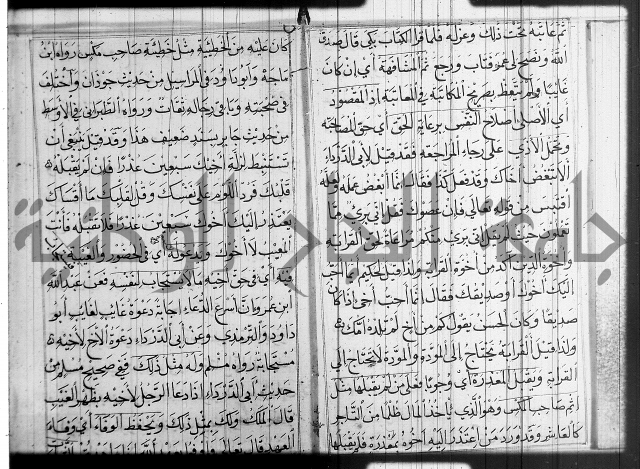 ثم عاتبه تحت ذلك وعزله فلما قرأ الكتاب بكى قال صدق
الله ونصح لي عمر فتاب ورجع ثم المشافهة أي إن كان
غائبا ولم يتعظ بصريح المكاتبة في المعاتبة إذ المقصود
أي الأصلي إصلاح النفس برعاية الحق أي حق المصاحبة
وتحمل الأذى على رجاء المراجعة فقد قيل لأبي الدرداء
ألا تبغض أخاك وقد فعل كذا فقال إنما أبغض عمله
اقتبس من قوله تعالى فإن عصوك فقل إني بريء مما
تعملون حيث لم يقل إني بريء منكم مراعاة لحق القرابة
وأخوة الدين آكد من أخوة القرابة ولذا قيل لحكيم أيما أحب
إليك أخوك أو صديقك فقال إنما أحب أخي إذا كان
صديقا وكان الحسن يقول كم من أخ لم تلده أمك
ولذا قيل القرابة تحتاج إلى المودة والمودة لا تحتاج إلى
القرابة ويقبل المعذرة أي وجوبا فعلى من لم يقبلها مثل
إثم صاحب المكس وهو الذي يأخذ المال ظلما من التاجر
كالعاشر وقد ورد من اعتذر إليه أخوه بمعذرة فلم يقبلها
كان عليه من الخطيئة مثل خطيئة صاحب مكس رواه ابن
ماجة وأبو داود في المراسيل من حديث جوذان واختلف
في صحبته وباقي رجاله ثقات ورواه الطبراني في الأوسط
من حديث جابر بسند ضعيف هذا وقد قيل ينبغي أن
تستنبط لزلة أخيك سبعين عذرا فإن لم يقبله
قلبك فرد اللوم على نفسك وقل لقلبك ما أقساك
يعتذر إليك أخوك سبعين عذرا فلا تقبله فأنت
المعيب لا أخوك ويدعو له أي في الحضور والغيبة
فيه أي في حق أخيه ما لا يستجاب لنفسه فعن عبد الله
ابن عمرو أن أسرع الدعاء إجابة دعوة غائب لغائب أبو
داود والترمذي وعن أبي الدرداء دعوة الأخ لأخيه
مستجابة رواه مسلم وله مثل ذلك وفي صحيح مسلم من
حديث أبي الدرداء إذا دعا الرجل لأخيه بظهر الغيب
قال الملك ولك بمثل ذلك ويحفظ الوفاء أي وفاء
العهد قال تعالى
جامعة النجاح الوطنية